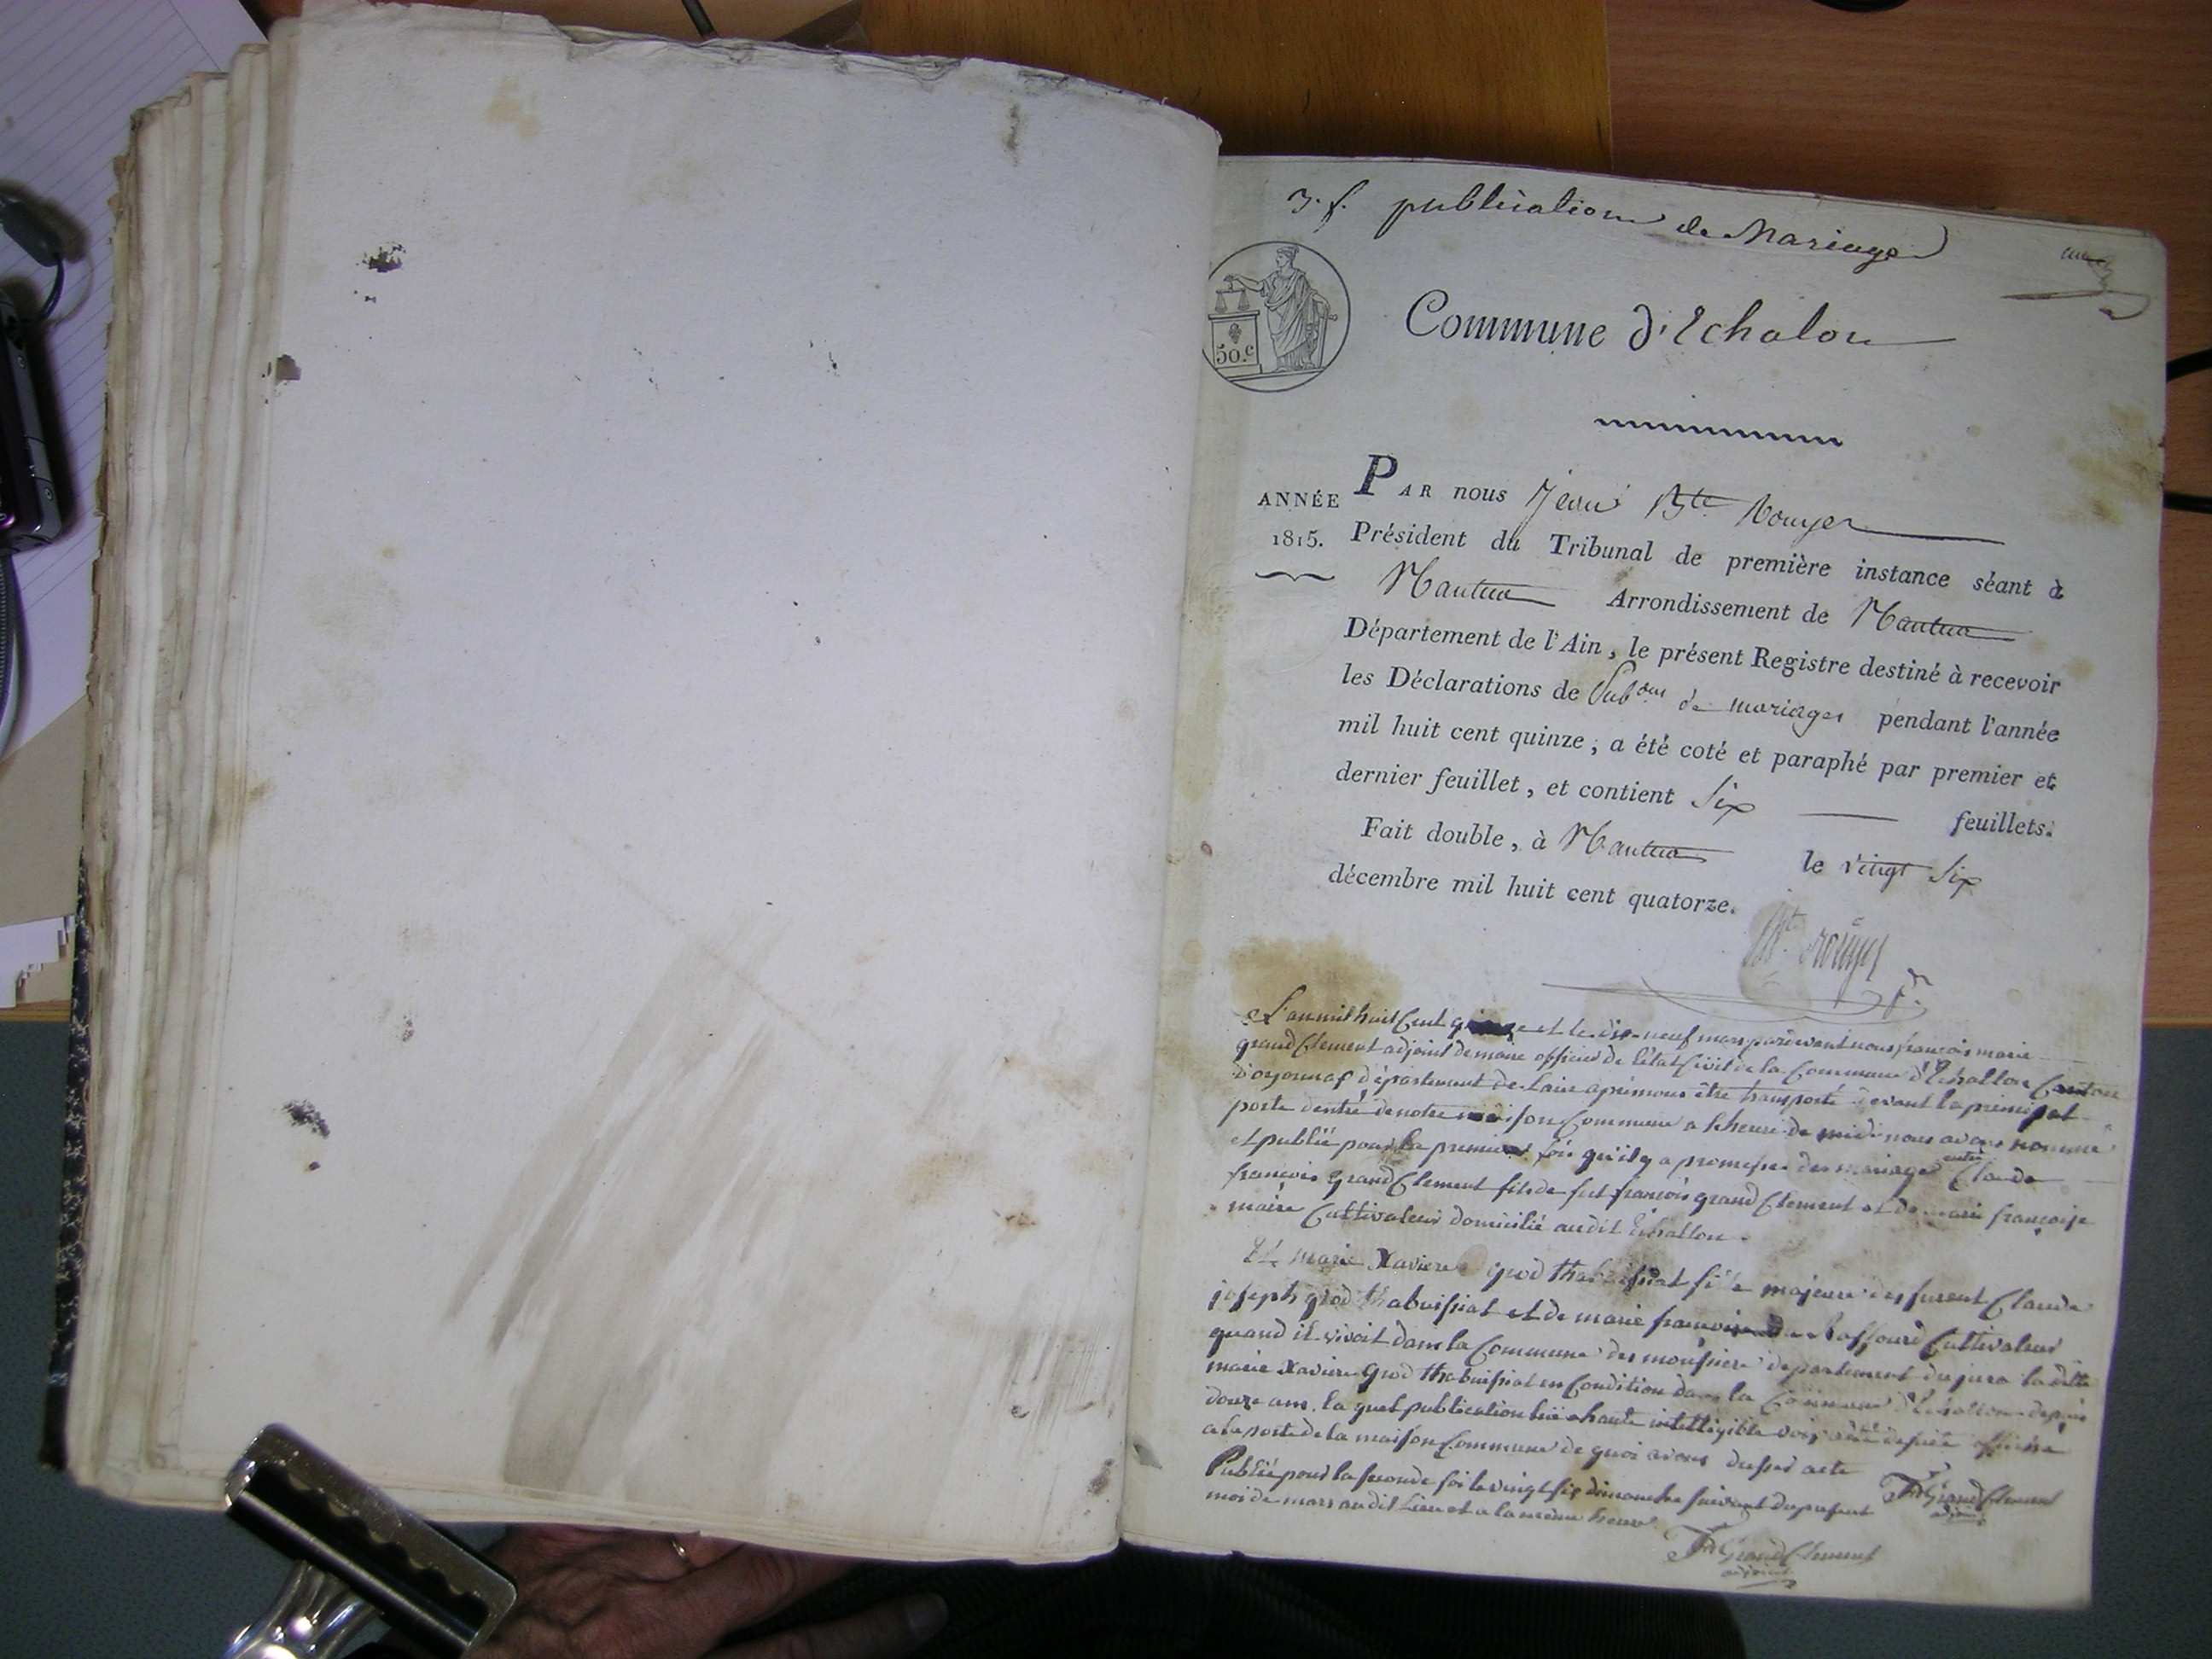 3. f. publication de Mariage
une
50.c
Commune d'Echalon
ANNÉE
1815.
PAR nous Jean Bte Rouyer
Président du Tribunal de première instance séant à
Nantua Arrondissement de Nantua
Département de l'Ain, le présent Registre destiné à recevoir
les Déclarations de Pubons de mariages pendant l'année
mil huit cent quinze, a été coté et paraphé par premier et
dernier feuillet, et contient Six feuillets.
Fait double, à Nantua le vingt Six
décembre mil huit cent quatorze.
L'an mil huit Cent et le dix-neuf mars pardevant nous françois marie
grand Clement adjoint de maire officier de l'état Civil de la Commune d'Echallon Canton
d'oyonnaf département de Lain après nous être transporté devant la principal
porte dentré de notre maison Commune a lheure de midi nous avons nommé
et publié pour la premier fois qu'il y a promesse des mariages entre Claude
françois grand Clement fils de fut françois grand Clement et de marie françoise
maire Cultivateur domicilié audit Echallon.
Et marie Xaviere grod thabuissiat fille majeure des furent Claude
joseph grod thabuissiat et de marie françoise Cultivateur
quand il vivoit dans la Commune des moussiere departement du jura la ditte
marie Xaviere Grod thabuissiat en Condition dans la Commune d'Echallon depuis
douze ans. la quel publication lüe a haute intelligible voix affiche
a la porte de la maison Commune de quoi avons dressé acte
Publié pour la seconde foi le vingt six dimanche suivant du present
moi de mars au dit Lieu et a la même heure
Grand Clement
adjoint
Grand Clement
adjoint